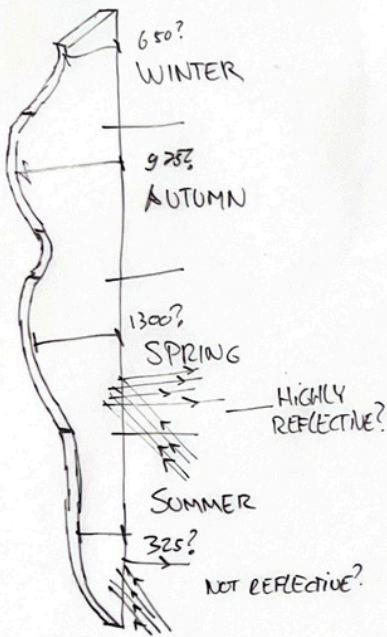 650?
WINTER
925?
AUTUMN
1300?
SPRING
HIGHLY
REFLECTIVE?
SUMMER
325?
NOT REFLECTIVE?